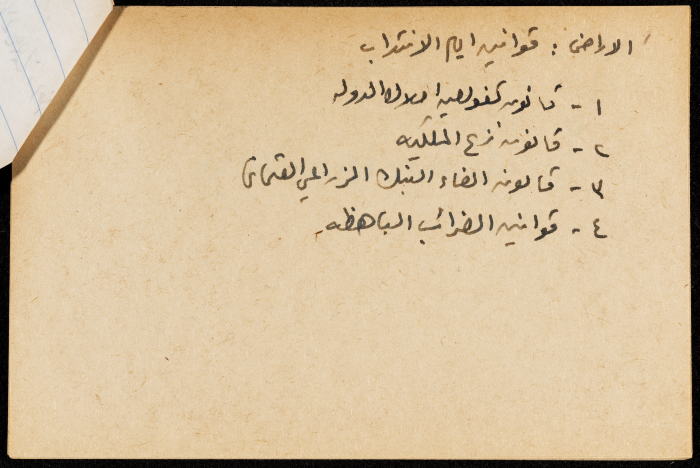 الاراضي : قوانين ايام الانتداب
١ - قانون تفويض املاك الدوله
٢ - قانون نزع الملكيه
٣ - قانون الغاء البنك الزراعي العثماني
٤ - قوانين الضرائب الباهظه